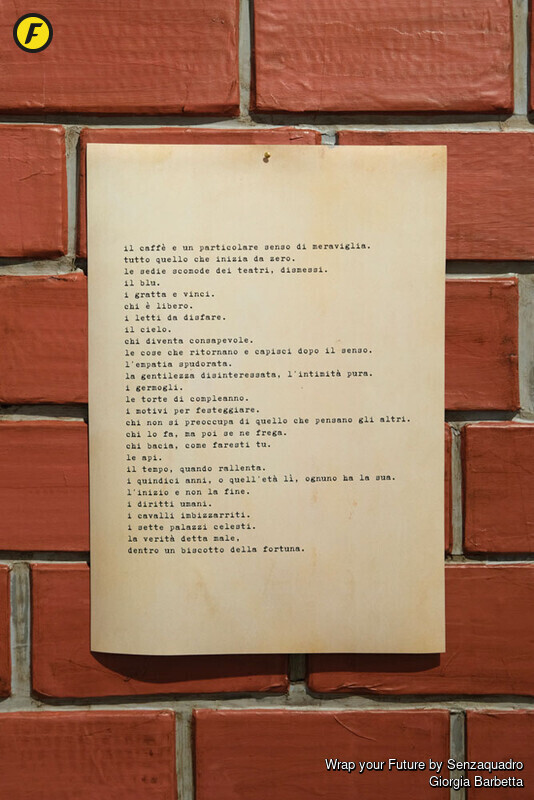 F
il caffè e un particolare senso di meraviglia.
tutto quello che inizia da zero.
le sedie scomode dei teatri, dismessi.
il blu.
i gratta e vinci.
chi è libero.
i letti da disfare.
il cielo.
chi diventa consapevole.
le cose che ritornano e capisci dopo il senso.
l'empatia spudorata.
la gentilezza disinteressata, l'intimità pura.
i germogli.
le torte di compleanno.
i motivi per festeggiare.
chi non si preoccupa di quello che pensano gli altri.
chi lo fa, ma poi se ne frega.
chi bacia, come faresti tu.
le api.
il tempo, quando rallenta.
i quindici anni, o quell'età lì, ognuno ha la sua.
l'inizio e non la fine.
i diritti umani.
i cavalli imbizzarriti.
i sette palazzi celesti.
la verità detta male,
dentro un biscotto della fortuna.
Wrap your Future by Senzaquadro
Giorgia Barbetta